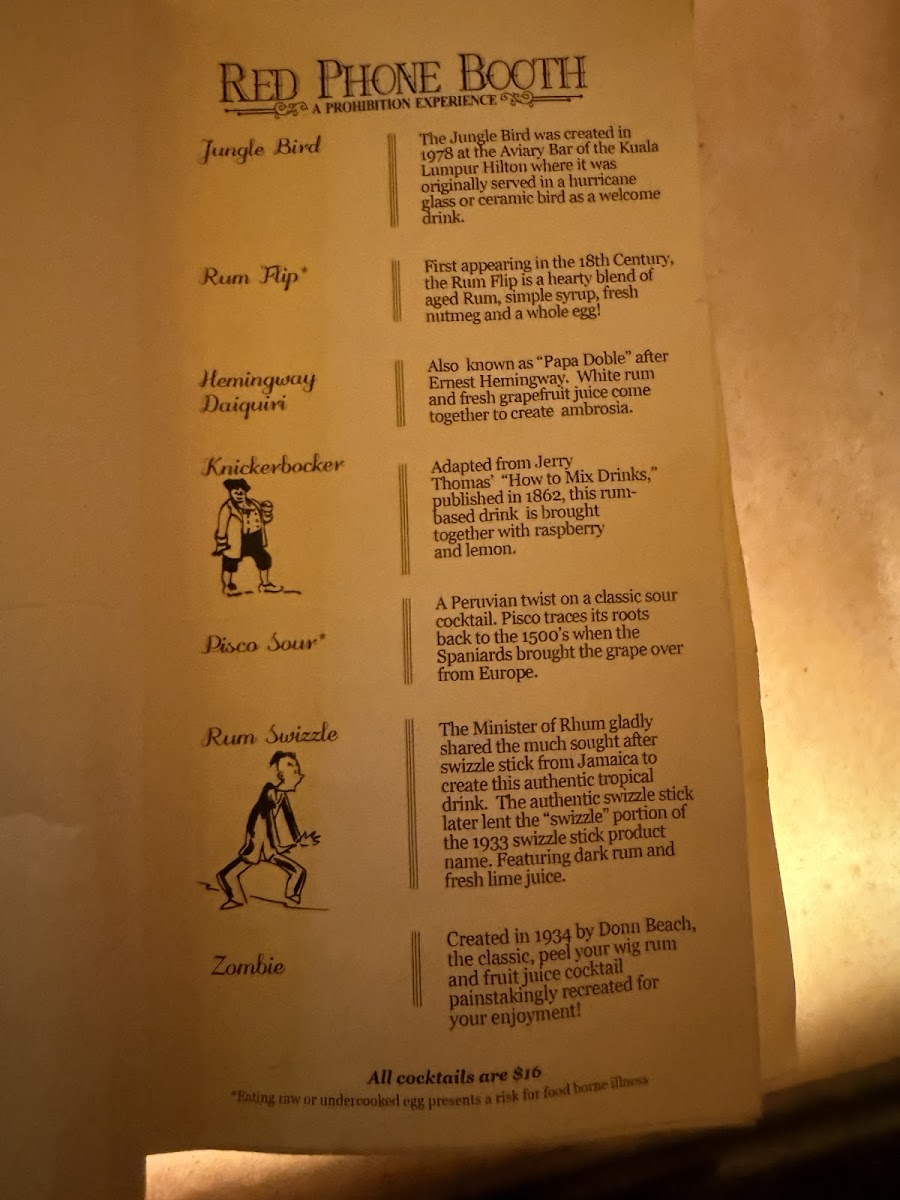 RED PHONE BOOTH
A PROHIBITION EXPERIENCE
Jungle Bird
The Jungle Bird was created in
1978 at the Aviary Bar of the Kuala
Lumpur Hilton where it was
originally served in a hurricane
glass or ceramic bird as a welcome
drink.
Rum Flip*
First appearing in the 18th Century,
the Rum Flip is a hearty blend of
aged Rum, simple syrup, fresh
nutmeg and a whole egg!
Hemingway
Daiquiri
Also known as “Papa Doble” after
Ernest Hemingway. White rum
and fresh grapefruit juice come
together to create ambrosia.
Knickerbocker
Adapted from Jerry
Thomas’ “How to Mix Drinks,”
published in 1862, this rum-
based drink is brought
together with raspberry
and lemon.
Pisco Sour*
A Peruvian twist on a classic sour
cocktail. Pisco traces its roots
back to the 1500’s when the
Spaniards brought the grape over
from Europe.
Rum Swizzle
The Minister of Rhum gladly
shared the much sought after
swizzle stick from Jamaica to
create this authentic tropical
drink. The authentic swizzle stick
later lent the “swizzle” portion of
the 1933 swizzle stick product
name. Featuring dark rum and
fresh lime juice.
Zombie
Created in 1934 by Donn Beach,
the classic, peel your wig rum
and fruit juice cocktail
painstakingly recreated for
your enjoyment!
All cocktails are $16
*Eating raw or undercooked egg presents a risk for food borne illness